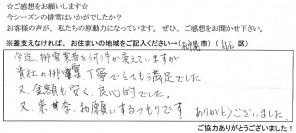 ☆ご感想をお願いします☆
今シーズンの排雪はいかがでしたか？
お客様の声が、私たちの原動力になっています。ぜひ、ご感想をお聞かせ下さい。
※差支えなければ、お住まいの地域をご記入ください→( 市)( 区)
今迄、排雪業者を何件か変えていますが
貴社の排雪 丁寧でとても満足でした。
又、金額も安く、良心的でした。
又、来季、お願いするつもりです ありがとうございました。
ご協力ありがとうございました！